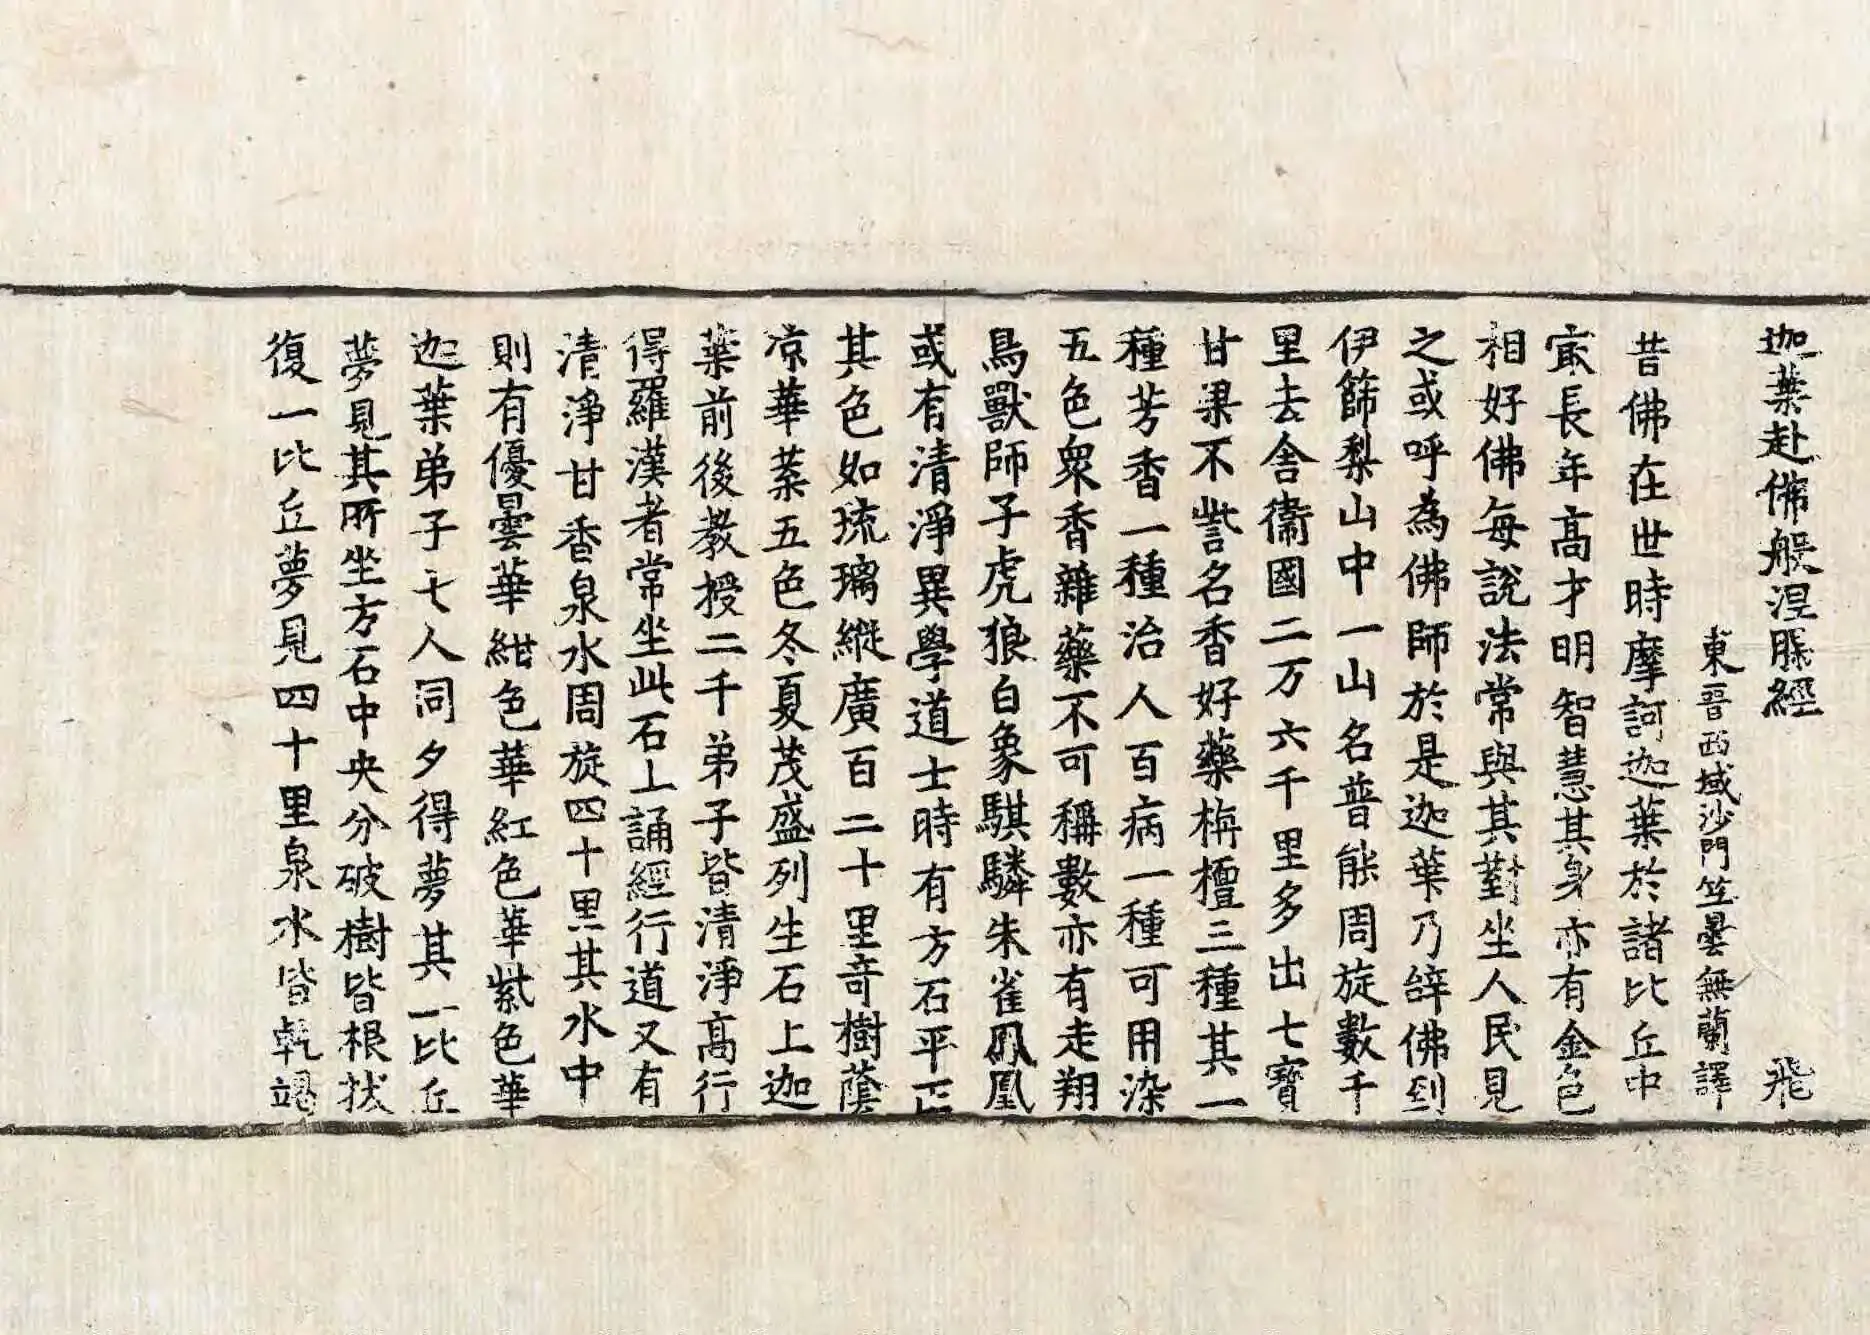 迦葉赴佛般涅槃經 飛
東晉西域沙門竺曇無蘭譯
昔佛在世時摩訶迦葉於諸比丘中
㝡長年高才明智慧其身亦有金色
相好佛每說法常與其對坐人民見
之或呼為佛師於是迦葉乃辝佛到
伊篩梨山中一山名普能周旋數千
里去舍衞國二万六千里多出七寶
甘果不訾名香好藥栴檀三種其一
種芳香一種治人百病一種可用染
五色衆香雜藥不可稱數亦有走翔
鳥獸師子虎狼白象騏驎朱雀鳳凰
或有清淨異學道士時有方石平正
其色如琉璃縱廣百二十里奇樹蔭
凉華菜五色冬夏茂盛列生石上迦
葉前後教授二千弟子皆清淨高行
得羅漢者常坐此石上誦經行道又有
清淨甘香泉水周旋四十里其水中
則有優曇華紺色華紅色華紫色華
迦葉弟子七人同夕得夢其一比丘
夢見其所坐方石中央分破樹皆根拔
復一比丘夢見四十里泉水皆乾竭